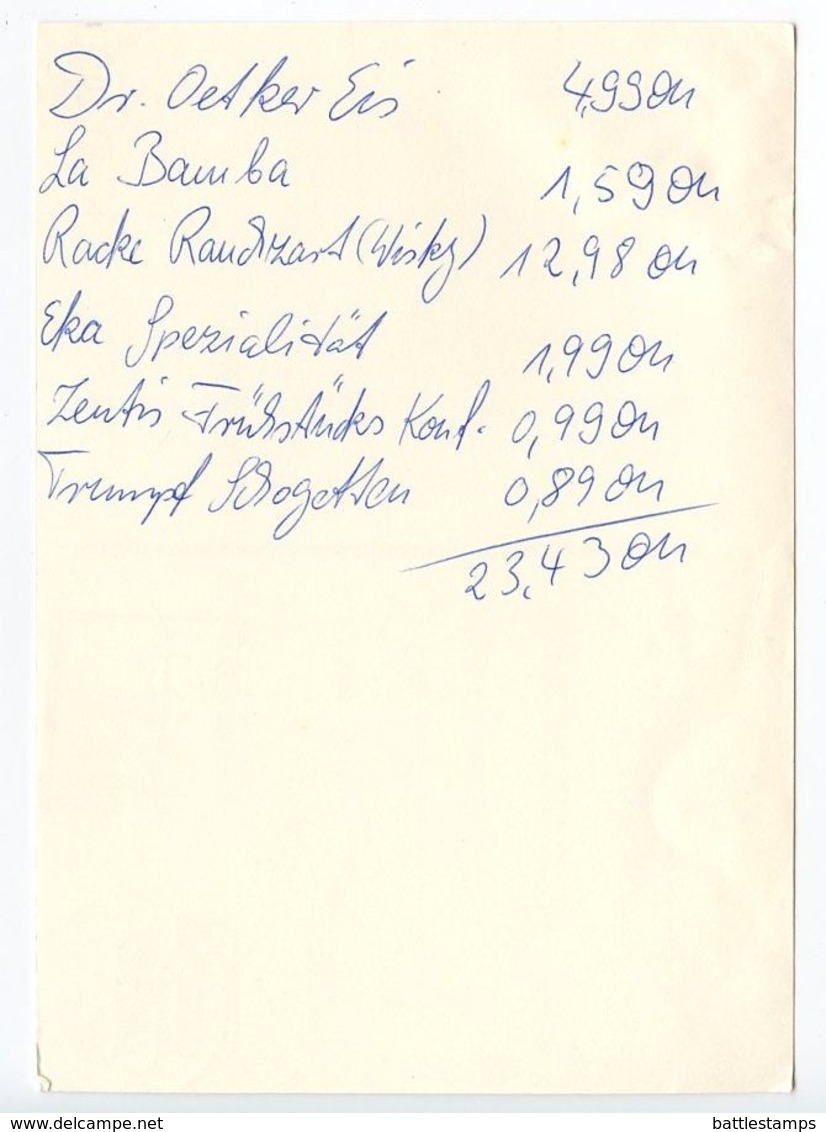 Dr. Oetker Eis 4,99 DM
La Bamba 1,59 DM
Racke Rauchzart (Wisky) 12,98 DM
Eka Spezialität 1,99 DM
Zentis Frühstücks Konf. 0,99 DM
Trumpf Schogetten 0,89 DM
23,43 DM
www.delcampe.net battlestamps